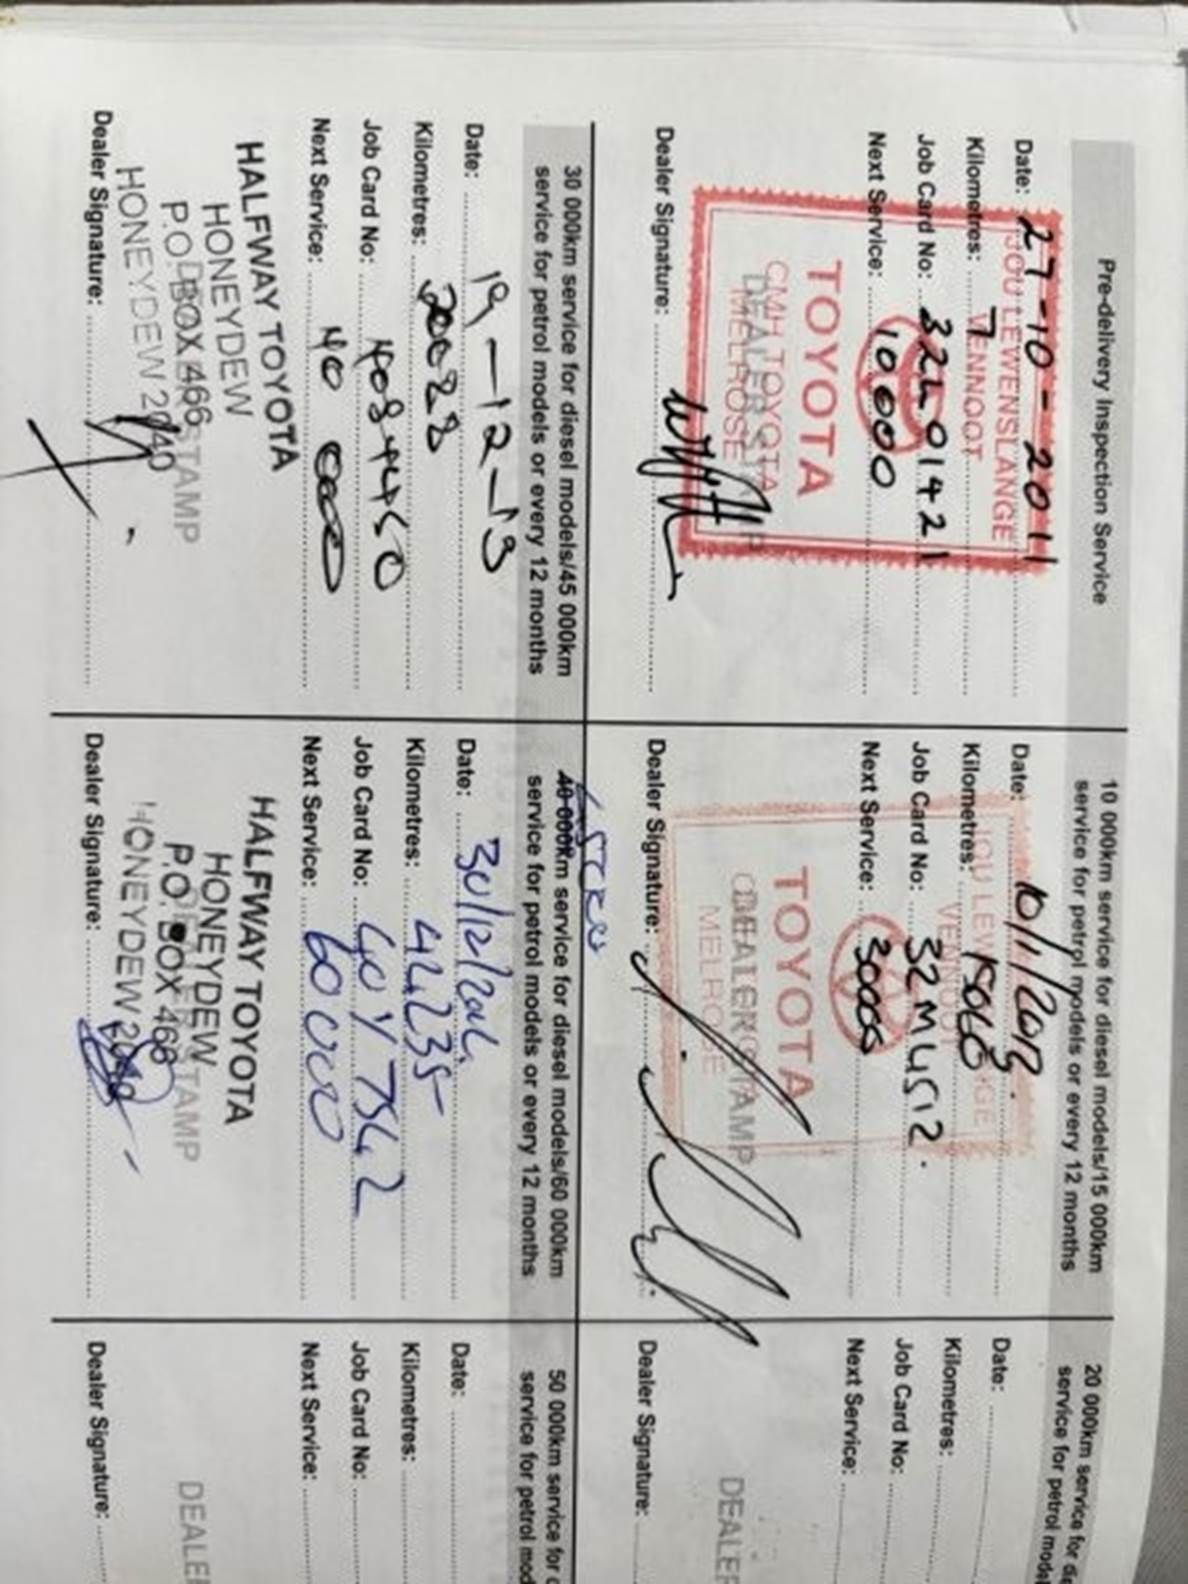 Pre-delivery Inspection Service
Date: 27-10-2011
JOU LEWENSLANGE
Kilometres: 7
VENNOOT
Job Card No: 32L01421
Next Service: 10000
TOYOTA
CMH TOYOTA
DEALER STAMP
MELROSE
Dealer Signature:
10 000km service for diesel models/15 000km
service for petrol models or every 12 months
Date: 10/1/2013.
JOU LEWENSLANGE
Kilometres: 15060
VENNOOT
Job Card No: 32M4512.
Next Service: 30000
TOYOTA
DEALER STAMP
MELROSE
Dealer Signature:
20 000km service for
service for petrol
Date:
Kilometres:
Job Card No:
Next Service:
Dealer Signature:
30 000km service for diesel models/45 000km
service for petrol models or every 12 months
Date: 19-12-13
Kilometres:
Job Card No:
Next Service: 40 000
HALFWAY TOYOTA
HONEYDEW
P.O. BOX 466
DEALER STAMP
HONEYDEW 2040
Dealer Signature:
40 000km service for diesel models/60 000km
service for petrol models or every 12 months
Date: 30/12/2014
Kilometres: 44235
Job Card No:
Next Service: 60 000
HALFWAY TOYOTA
HONEYDEW
P.O. BOX 466
DEALER STAMP
HONEYDEW 2040
Dealer Signature:
50 000km service for
service for petrol
Date:
Kilometres:
Job Card No:
Next Service:
Dealer Signature: